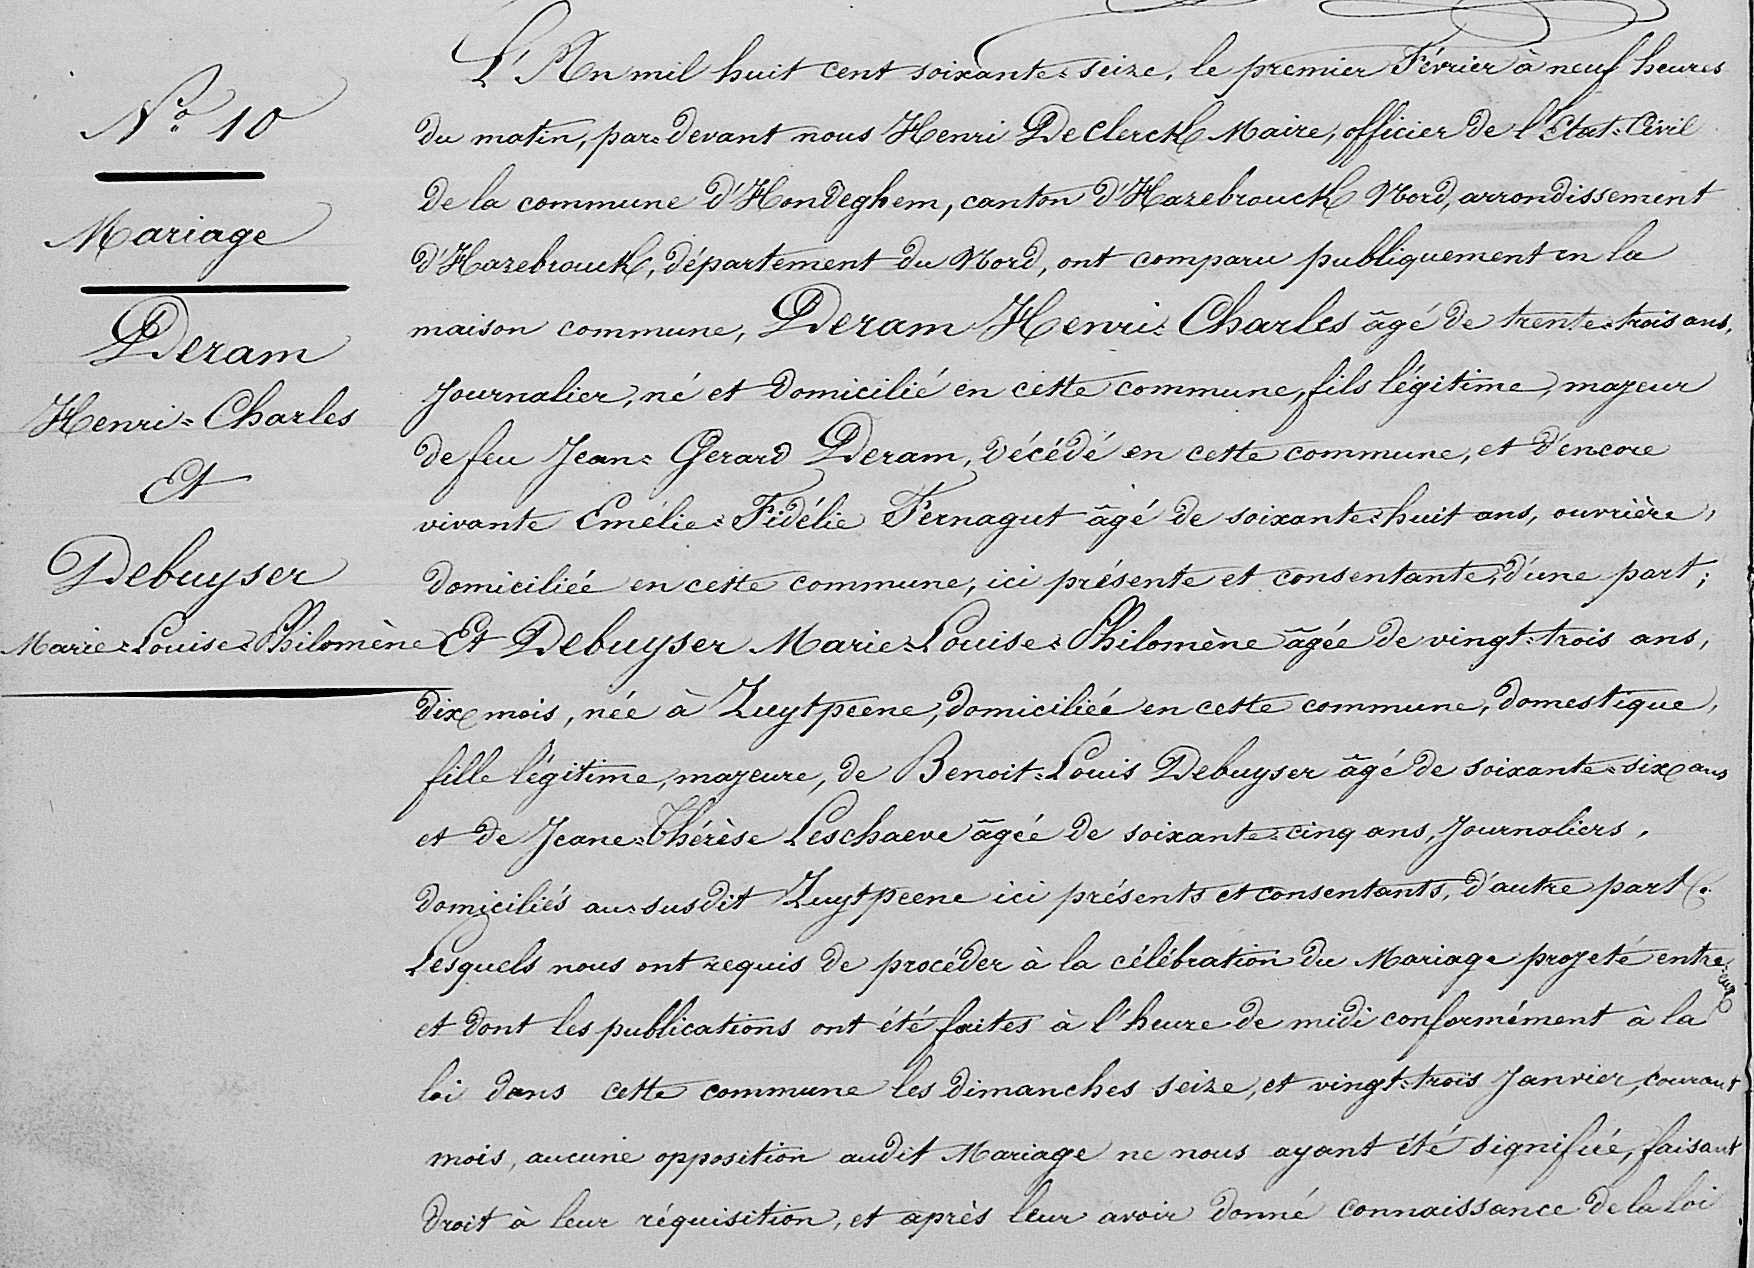 N° 10
Mariage
Deram
Henri-Charles
Et
Debuyser
Marie-Louise-Philomène
L'An mil huit cent soixante-seize, le premier Février à neuf heures
du matin, par-devant nous Henri Declerck Maire, officier de l'Etat-Civil
de la commune d'Hondeghem, canton d'Hazebrouck Nord, arrondissement
d'Hazebrouck, département du Nord, ont comparu publiquement en la
maison commune, Deram Henri-Charles âgé de trente-trois ans,
Journalier, né et domicilié en cette commune, fils légitime, majeur
de feu Jean-Gerard Deram, décédé en cette commune, et d'encore
vivante Emélie-Fidélie Fernagut âgé de soixante-huit ans, ouvrière,
domiciliée en cette commune, ici présente et consentante, d'une part;
Et Debuyser Marie-Louise-Philomène âgée de vingt-trois ans,
dix mois, née à Zuytpeene, domiciliée en cette commune, domestique,
fille légitime, majeure, de Benoit-Louis Debuyser âgé de soixante-six ans
et de Jeane-Thérèse Leschaeve âgée de soixante-cinq ans, Journaliers,
domiciliés au-susdit Zuytpeene ici présents et consentants, d'autre part.
Lesquels nous ont requis de procéder à la célébration du Mariage projeté entre-eux
et dont les publications ont été faites à l'heure de midi conformément à la
loi dans cette commune les dimanches seize, et vingt-trois Janvier, courant
mois, aucune opposition audit Mariage ne nous ayant été signifiée, faisant
droit à leur réquisition, et après leur avoir donné connaissance de la loi